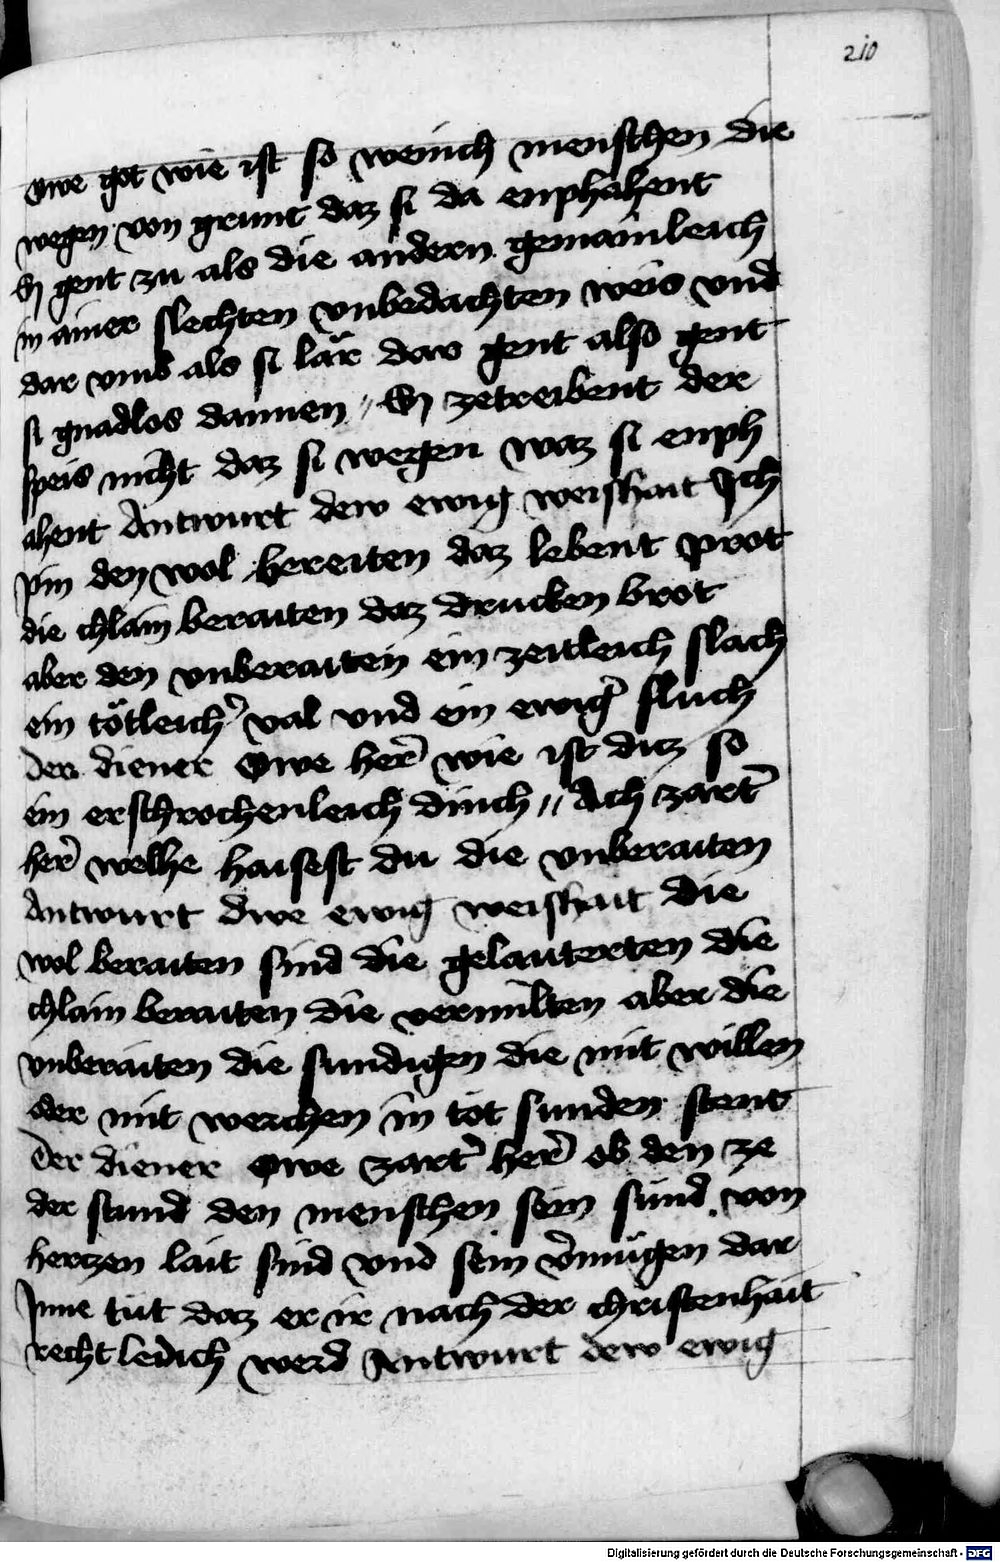 210
Owe got wie ist so wenich menschen die
wegen von grunt daz si da enphahent
Sy gent zu als die andern gemainleich
in ainer slechten vnbedachten weis vnd
dar vmb als si lär dar gent also gent
si gnadlos dannen // Sy zetreibent der
speis nicht daz si wegen waz si enph
ahent Antwurt dew ewig weishait Ich
pin den wol bereiten daz lebent prot
die chlain beraiten daz drucken brot
aber den vnberaiten ein zeitleich slach
ein tötleich̾ val vnd ein ewig̾ fluch
Der diener Owe her̾ wie ist ditz so
ein erschrochenleich dinch // Ach zart̾
her̾ welhe haisest du die vnberaiten
Antwurt dwe ewig weishait die
wol beraiten sind die gelauterten die
chlain beraiten die vermilten aber die
vnberaiten die sundigen die mit willen
oder mit werchen in tot sunden stent
Der diener Owe zart̾ her̾ ob den ze
der stund den menschen sein sünd von
hertzen lait sind vnd sein v̾mügen dar
Inne tüt daz er ir nach der christenhait
recht ledich werd Antwurt dew ewig
Digitalisierung gefördert durch die Deutsche Forschungsgemeinschaft - DFG